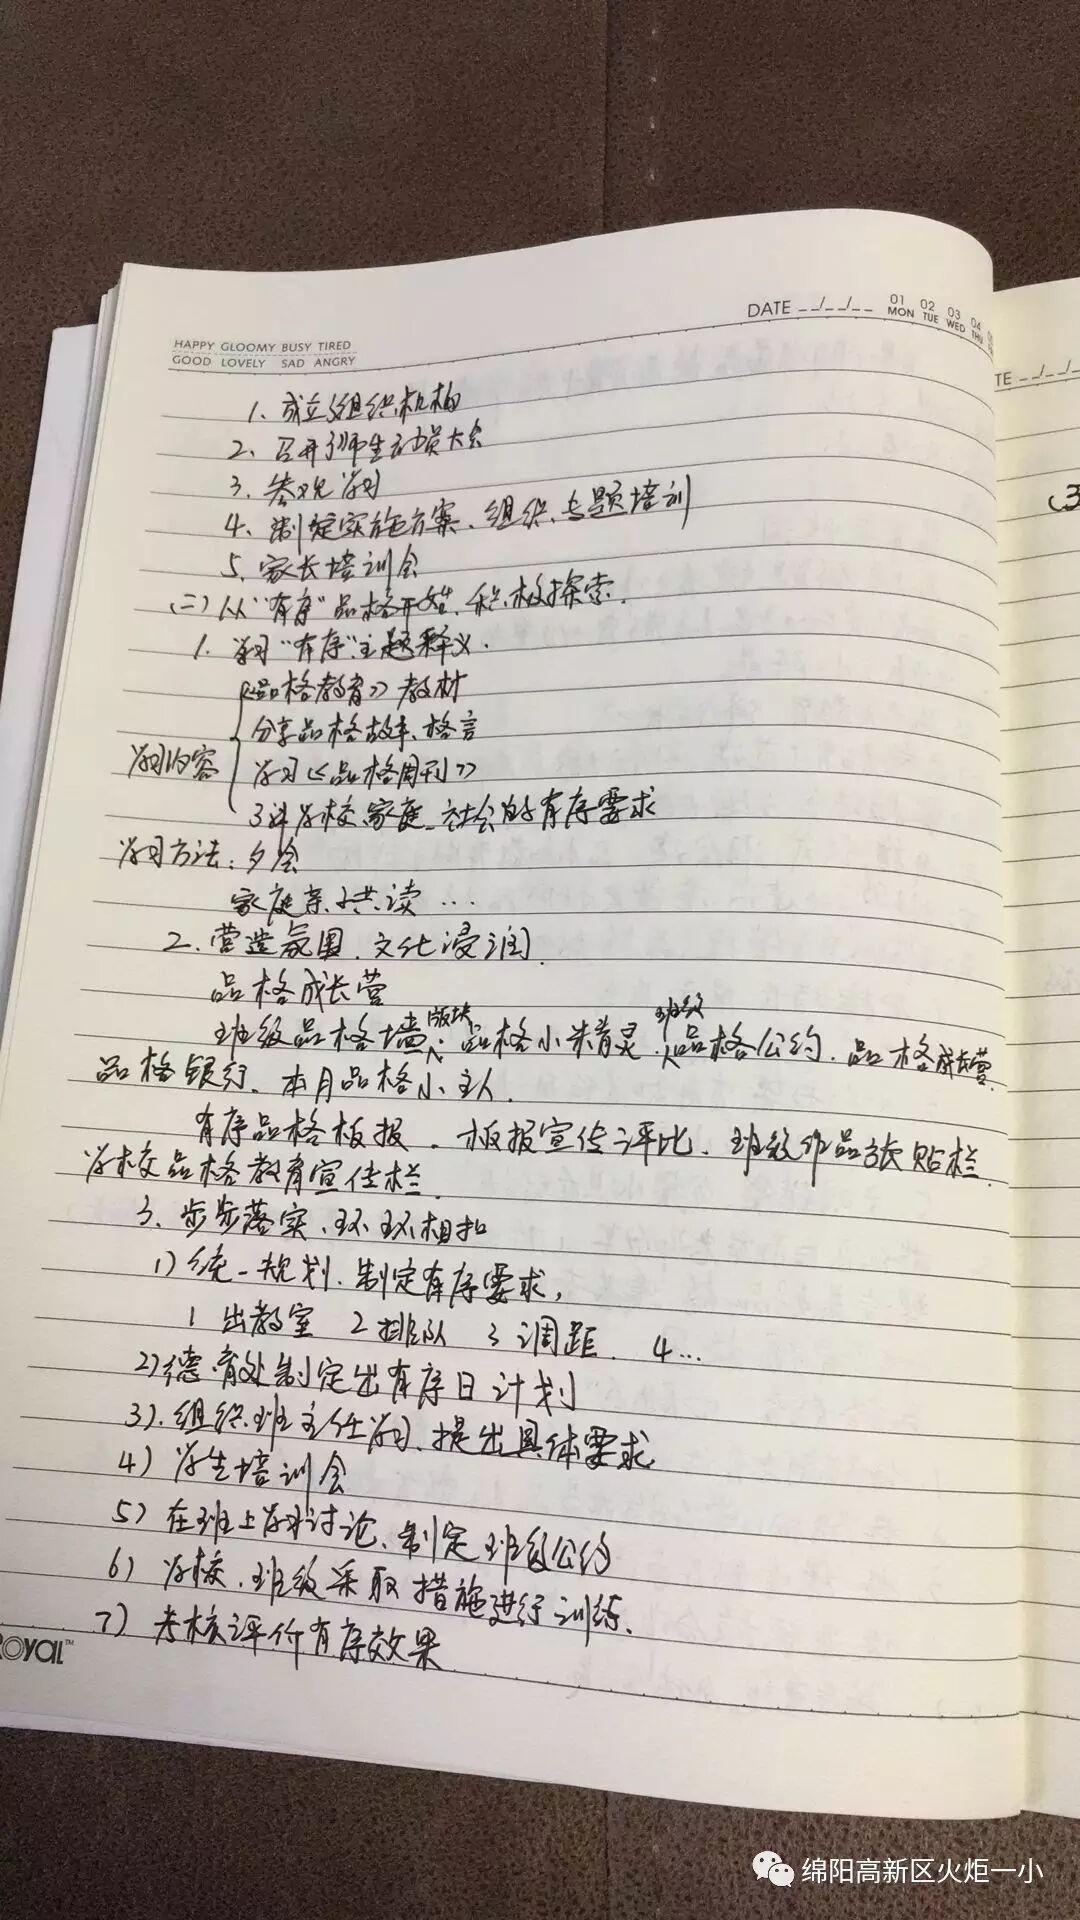 HAPPY GLOOMY BUSY TIRED
GOOD LOVELY SAD ANGRY
DATE __/__/__ 01 MON 02 TUE 03 WED 04 THU
1、成立组织机构
2、召开师生动员大会
3、参观学习
4、制定实施方案、组织专题培训
5、家长培训会
(二)从“有序”品格开始、积极探索.
1、学习“有序”主题释义.
《品格教育》教材
分享品格故事、格言
学习内容
学习《品格周刊》
了解学校、家庭、社会的有序要求
学习方法：夕会
家庭亲子共读…
2、营造氛围、文化浸润.
品格成长营
班级品格墙版块：品格小精灵、班级品格公约、品格成长营、
品格银行、本月品格小主人.
有序品格板报、板报宣传评比、班级作品张贴栏、
学校品格教育宣传栏.
3、步步落实、环环相扣
1)统一规划、制定有序要求,
1 出教室 2 排队 3 调距 4…
2)德育处制定出有序日计划
3).组织班主任学习、提出具体要求
4)学生培训会
5)在班上学习讨论、制定班级公约
6)学校、班级采取措施进行训练、
7)考核评价有序效果
ROYAL™
TE __/__/
(3
绵阳高新区火炬一小